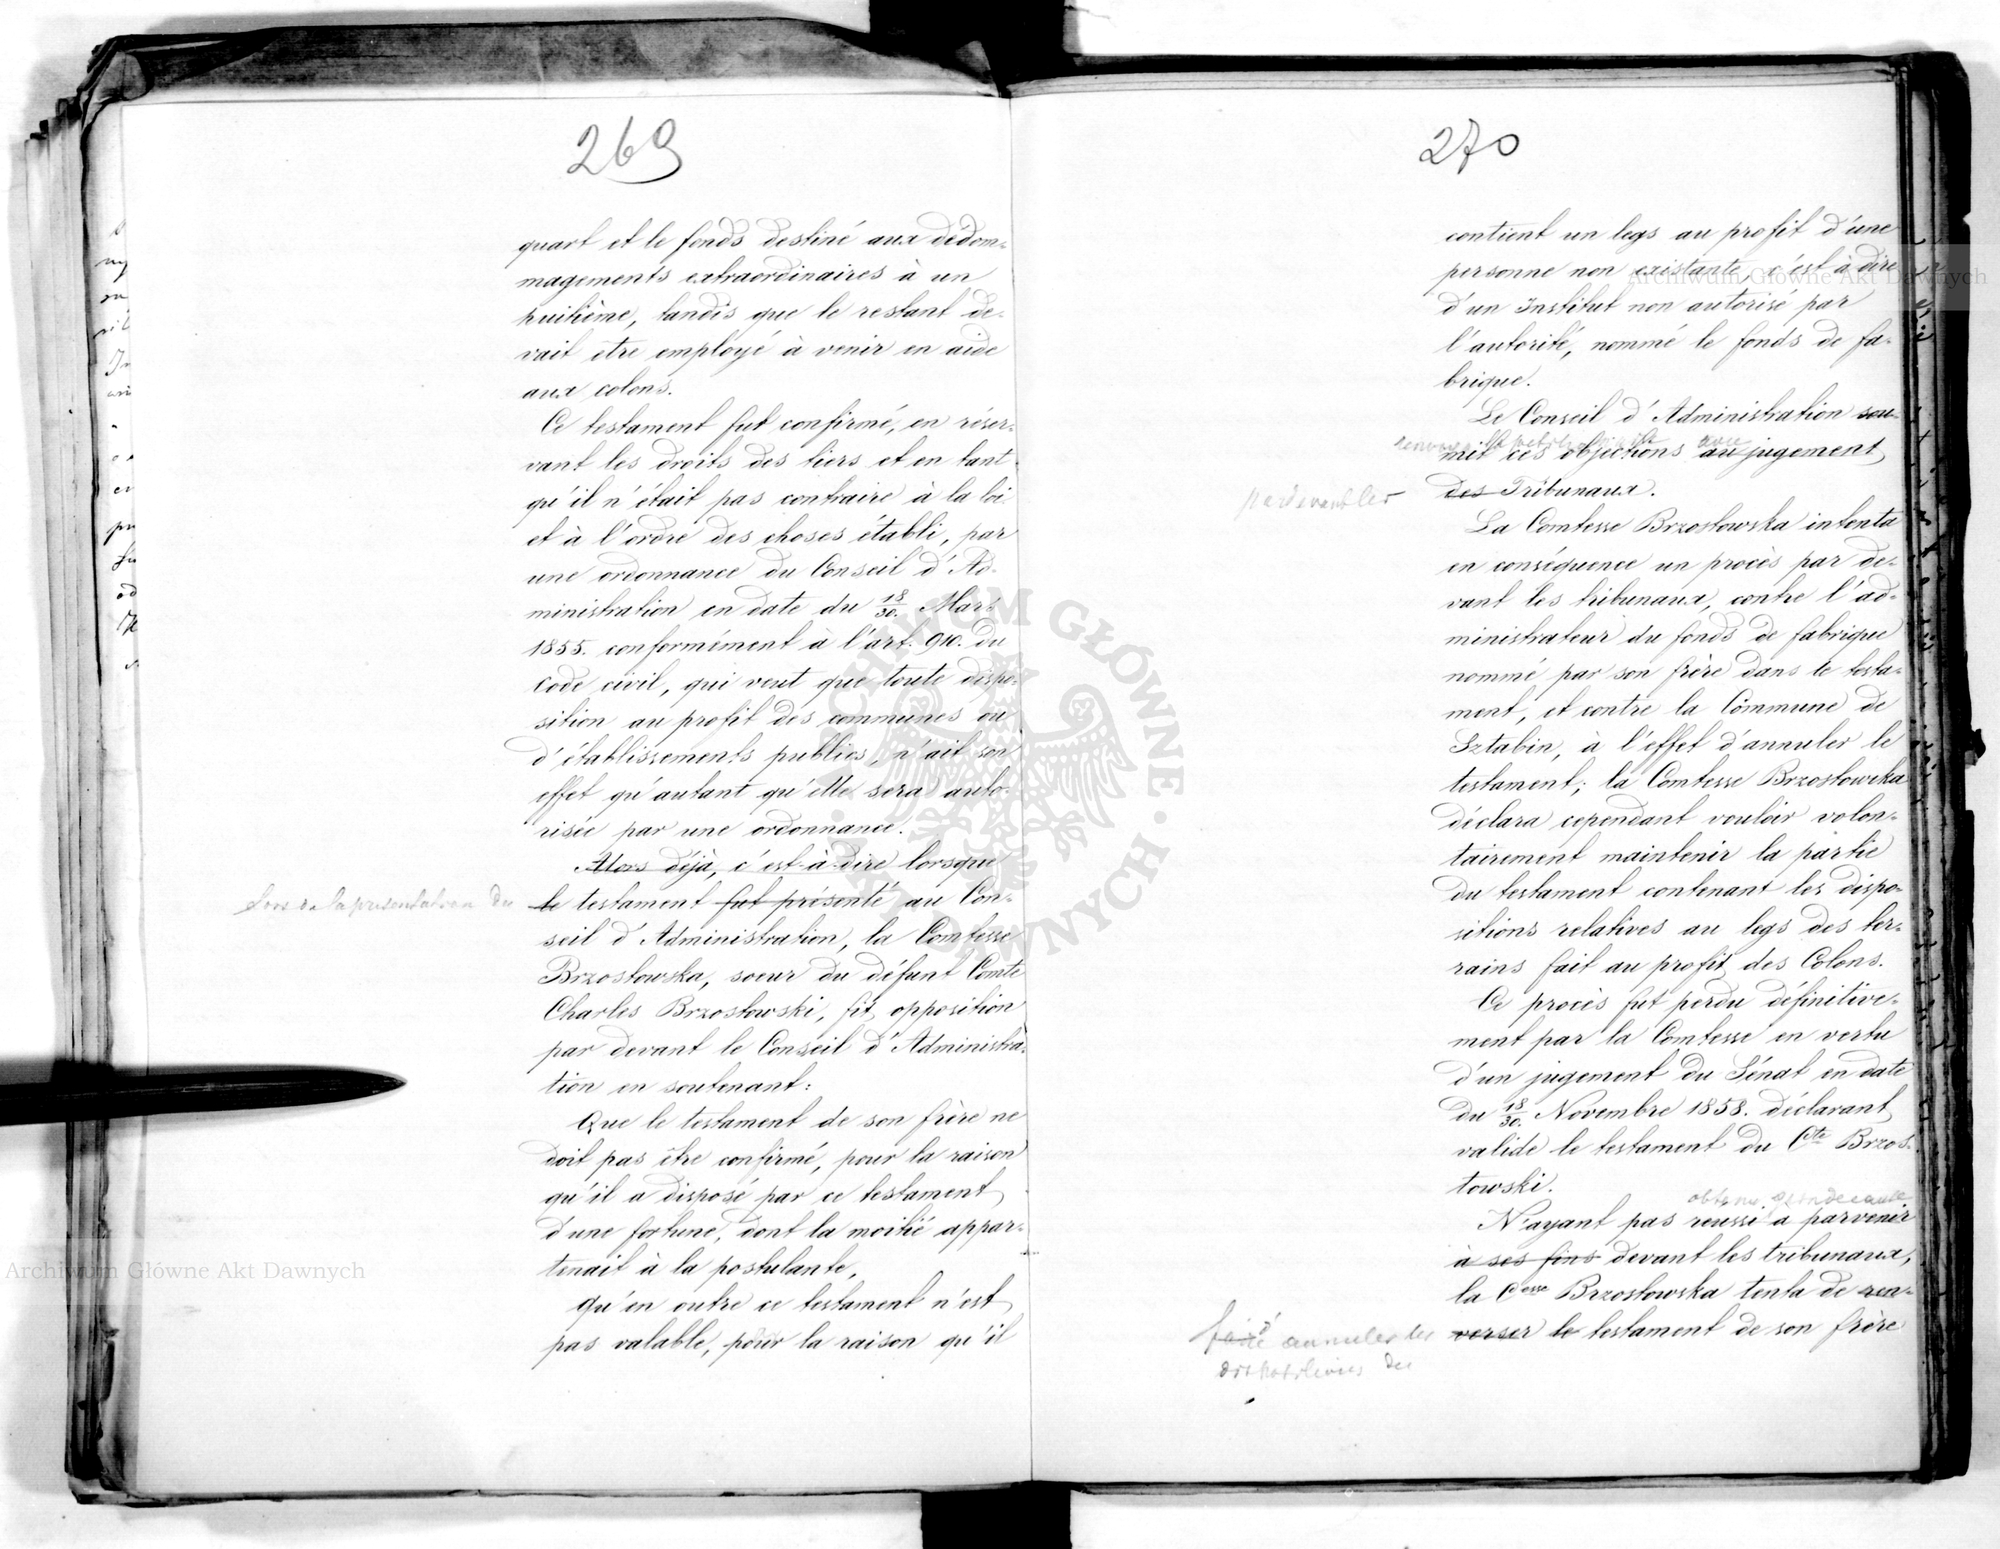 269
quart et le fonds destiné aux dédom-
magements extraordinaires à un
huitième, tandis que le restant de-
vait être employé à venir en aide
aux colons.
Ce testament fut confirmé, en réser-
vant les droits des tiers et en tant
qu'il n'était pas contraire à la loi
et à l'ordre des choses établi, par
une ordonnance du Conseil d'Ad-
ministration en date du 18/30. Mars
1855. conformément à l'art. 910. du
Code civil, qui veut que toute dispo-
sition au profit des communes ou
d'établissements publics, n'ait son
effet qu'autant qu'elle sera auto-
risée par une ordonnance.
Alors déjà, c'est-à-dire lorsque
Lors de la présentation du
le testament fut présenté au Con-
seil d'Administration, la Comtesse
Brzostowska, soeur du défunt Comte
Charles Brzostowski, fit opposition
par devant le Conseil d'Administra-
tion en soutenant:
Que le testament de son frère ne
doit pas être confirmé, pour la raison
qu'il a disposé par ce testament
d'une fortune, dont la moitié appar-
tenait à la postulante,
qu'en outre ce testament n'est
pas valable, pour la raison qu'il
270
contient un legs au profit d'une
personne non existante, c'est à dire
d'un Institut non autorisé par
l'autorité, nommé le fonds de fa-
brique.
Le Conseil d'Administration sou-
mit ces objections au jugement
pardevant les
des Tribunaux.
La Comtesse Brzostowska intenta
en conséquence un procès par de-
vant les tribunaux, contre l'ad-
ministrateur du fonds de fabrique
nommé par son frère dans le testa-
ment, et contre la Commune de
Sztabin, à l'effet d'annuler le
testament; la Comtesse Brzostowska
déclara cependant vouloir volon-
tairement maintenir la partie
du testament contenant les dispo-
sitions relatives au legs des ter-
rains fait au profit des Colons.
Ce procès fut perdu définitive-
ment par la Comtesse en vertu
d'un jugement du Sénat en date
du 18/30. Novembre 1858. déclarant
valide le testament du Cte Brzos-
towski.
obtenu gain de cause
N'ayant pas réussi à parvenir
à ses fins devant les tribunaux,
la Cesse Brzostowska tenta de ren-
verser le testament de son frère
faire annuler les
dispositions du
Archiwum Główne Akt Dawnych
Archiwum Główne Akt Dawnych
ARCHIWUM GŁÓWNE AKT DAWNYCH